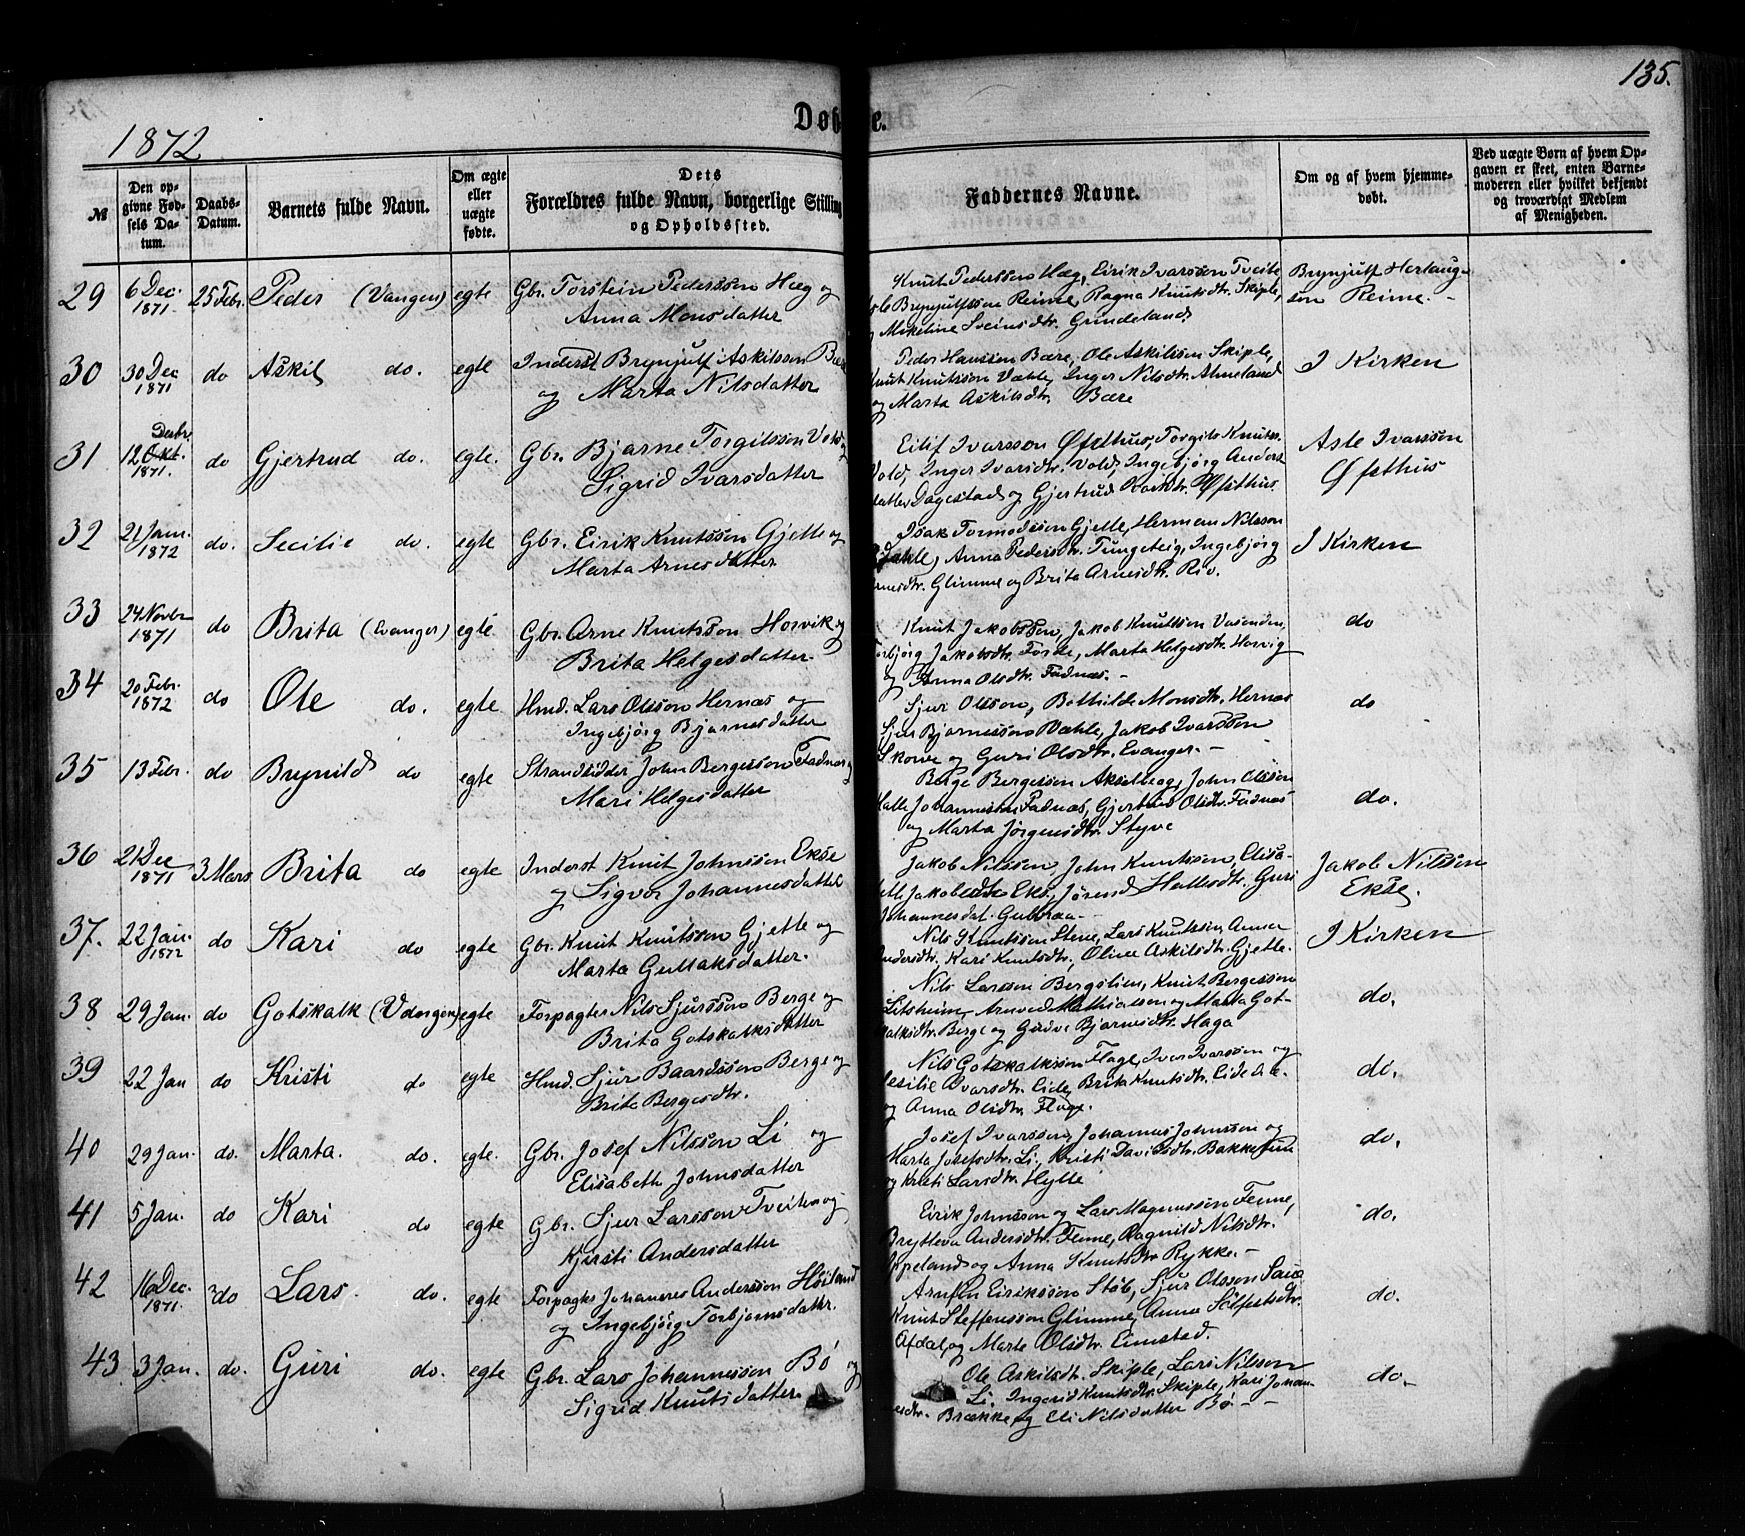 135.
Døbte.
1872
№
Den opgivne Fødsels Datum.
Daabs-Datum.
Barnets fulde Navn.
Om ægte eller uægte fødte.
Dets Forældres fulde Navn, borgerlige Stilling og Opholdssted.
Faddernes Navne.
Om og af hvem hjemmedøbt.
Ved uægte Børn af hvem Opgaven er skeet, enten Barnemoderen eller hvilket bekjendt og troværdigt Medlem af Menigheden.
29 6 Dec. 1871. 25 Febr. Peder (Vangen) egte
Gbr. Torstein Pedersson Hæg og
Anna Monsdatter
Knut Pedersson Hæg, Eirik Ivarsson Tveite
Brynjulfsson Reime, Ragna Knutsdtr. Skiple,
Mikeline Sveinsdtr. Grindeland
Brynjulf Herlaug-
son Reime. -
30 30 Dec 1871 do Askil do. egte
Inderst Brynjulf Askilsson Bære
og Marta Nilsdatter
Peder Hansson Bære, Ole Askilsson Skiple,
Knut Knutsson Væhle, Inger Nilsdtr. Almeland
og Marta Askilsdtr. Bære
I Kirken
31 12 Okt. Decbr. 1871. do Gjertrud do. egte.
Gbr. Bjarne Torgilsson Vold og
Sigrid Ivarsdatter
Eilif Ivarsson Øfsthus, Torgils Knuts.
Vold, Inger Ivarsdtr. Vold, Ingebjørg Anders
datter Dagestad og Gjertrud Larsdtr. Øfsthus.
Asle Ivarsson
Øfsthus
32 21 Janu. 1872 do. Secilie do. egte
Gbr. Eirik Knutsson Gjelle og
Marta Arnesdatter
Isak Tormodsson Gjelle, Herman Nilsson
Anna Pedersdtr. Tungeteig, Ingebjørg
Glimme og Brita Arnesdtr. Riv.
I Kirken
33 24 Novbr 1871 do Brita (Evanger) egte
Gbr. Arne Knutsson Horvik og
Brita Helgesdatter
Knut Jakobsson, Jakob Knutsson Vasenden,
Torbjørg Jakobsdtr. Førde, Marta Helgesdtr. Horvig
og Anna Olsdtr. Fadnæs. -
do
34 20 Febr. 1872 do Ole do. egte
Hmd. Lars Olsson Hernæs og
Ingebjørg Bjarnesdatter
Sjur Olsson, Bothilde Monsdtr. Hernæs
Sjur Bjarnesson Væhle, Jakob Ivarsson
Skorve og Guri Olsdtr. Evanger. -
do
35 13 Febr. do Brynild do egte
Strandsidder John Bergesson Fadnæs og
Mari Helgesdatter
Berge Bergesson Akselberg, John Olsson
Halle Johannesson Fadnæs, Gjertrud Olsdtr. Fadnæs
og Marta Jørgensdtr. Styve
do.
36 21 Dec 1871 3 Mars Brita do egte
Inderst Knut Johnsson Ekse
og Sigvor Johannesdatter
Jakob Nilsson, John Knutsson, Elisa-
beth Jakobsdtr. Ekse, Jørend Hallesdtr. Guri
Johannesdat. Gulbraa -
Jakob Nilsson
Ekse.
37. 22 Jan. 1872 do Kari do egte
Gbr. Knut Knutsson Gjelle og
Marta Gullaksdatter.
Nils Knutsson Stene, Lars Knutsson, Anna
Andersdtr. Kari Knutsdtr., Oline Askilsdtr. Gjelle.
I Kirken
38 29 Jan. do Gotskalk (Vdangen) egte
Forpagter Nils Sjursson Berge og
Brita Gotskalksdatter
Nils Larsson Bergslien, Knut Bergesson
Litsheim, Mathiassen og Marta Got-
skalksdtr. Berge og Gudve Bjarnesdtr. Haga
do,
39 22 Jan do Kristi do egte
Hmd. Sjur Baardsson Berge og
Brita Bergesdtr.
Nils Gotskalksson Flage, Ivar Ivarsson og
Cesilie Ivarsdtr. Eide, Brita Knutsdtr. Eide
og Anna Olsdtr. Flage.
do,
40 29 Jan. do. Marta. do. egte.
Gbr. Josef Nilsson Li og
Elisabeth Johnsdatter
Josef Ivarsson, Johannes Johnson og
Marta Josefsdtr. Li, Kristi Davidsdtr. Bakketun
og Kristi Larsdtr. Hylle
do,
41 5 Jan. do Kari do egte
Gbr. Sjur Larsson Tveiten og
Kjersti Andersdatter
Eirik Johnsson og Lars Magnusson Fenne,
Brytteva Andersdtr. Fenne, Ragnild Nilsdtr.
og Anna Knutsdtr. Rykke. -
do.
42 16 Dec. 1871. do Lars. do. egte
Forpagter Johannes Andersson Høiland
og Ingebjørg Torbjørnsdatter.
Arnfin Eiriksson Støb, Sjur Olsson Saue
Knut Steffensson Glimme, Anna Sølfestsdtr.
Afdal, og Marte Olsdtr. Eimstad.
do.
43 3 Jan. do. Guri do. egte
Gbr. Lars Johannesson Bø og
Sigrid Knutsdatter
Ole Askilsdtr. Skiple, Lars Nilsson
Li, Ingerid Knutsdtr. Skiple, Kari Johan-
nesdtr. Brække, og Eli Nilsdatter Bø - -
do. -